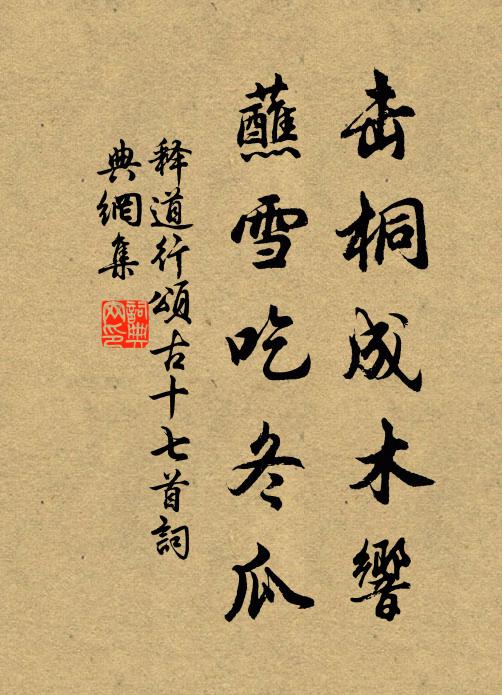 击桐成木響
蘸雪吃冬瓜
释道行頌古十七首詞
典網集
詞典
网印